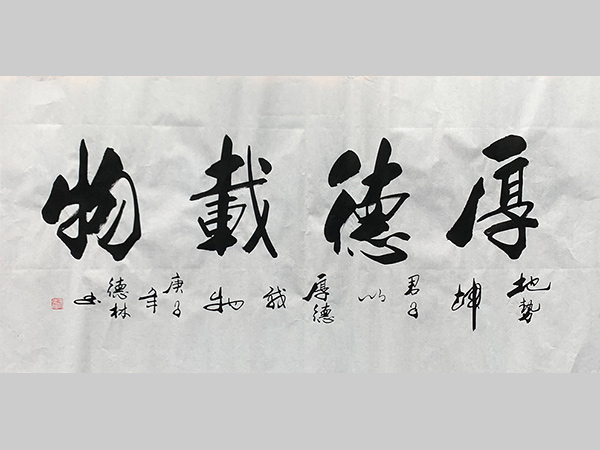 厚德載物
地势坤君子以厚德载物庚子年德林书